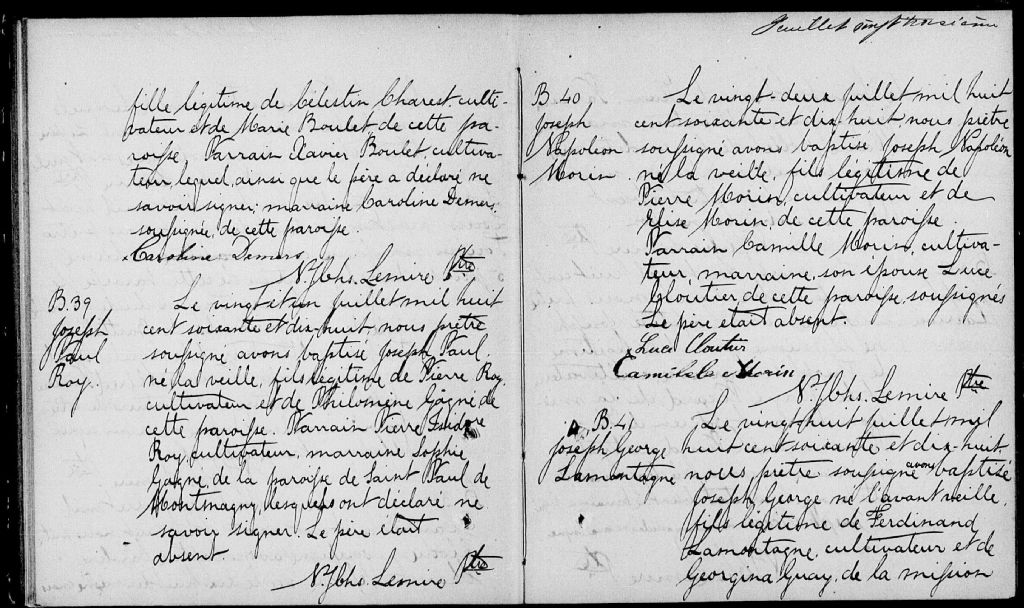 fille légitime de Célestin Charest culti-
vateur et de Marie Boulet, de cette pa-
roisse, Parrain Xavier Boulet, cultiva-
teur, lequel, ainsi que le père a déclaré ne
savoir signer; marraine Caroline Demers,
soussignée, de cette paroisse.
Caroline Demers
N. Jbhs. Lemire Ptre
B. 39
Joseph
Paul
Roy.
Le vingt et un juillet mil huit
cent soixante et dix-huit, nous prêtre
soussigné avons baptisé Joseph Paul,
né la veille, fils légitime de Pierre Roy,
cultivateur et de Philomène Gagné de
cette paroisse. Parrain Pierre Isidore
Roy, cultivateur, marraine Sophie
Gagné, de la paroisse de Saint Paul de
Montmagny, lesquels ont déclaré ne
savoir signer. Le père était
absent.
N. Jbhs. Lemire Ptre
Feuillet vingt troisième
B. 40
Joseph
Napoléon
Morin
Le vingt-deux juillet mil huit
cent soixante et dix huit, nous prêtre
soussigné avons baptisé Joseph Napoléon
né la veille, fils légitime de
Pierre Morin, cultivateur et de
Elise Morin, de cette paroisse.
Parrain Camille Morin, cultiva-
teur, marraine, son épouse Luce
Cloutier, de cette paroisse, soussignés
Le père était absent.
Luce Cloutier
Camille Morin
N. Jbhs. Lemire Ptre
B. 41
Joseph George
Lamontagne
Le vingt huit juillet mil
huit cent soixante et dix-huit,
nous, prêtre soussigné avons baptisé
Joseph George né l'avant veille,
fils légitime de Ferdinand
Lamontagne, cultivateur et de
Georgina Guay, de la mission